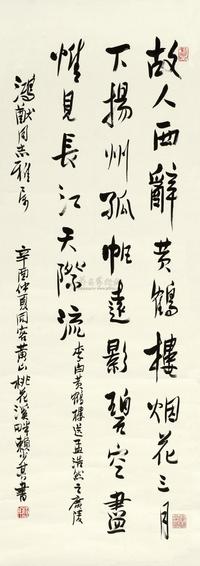 故人西辭黄鶴樓烟花三月
下揚州孤帆遠影碧空盡
惟見長江天際流
李白黄鶴樓送孟浩然之廣陵
鴻猷同志雅属
辛酉仲夏同客黄山桃花溪畔賴少其書